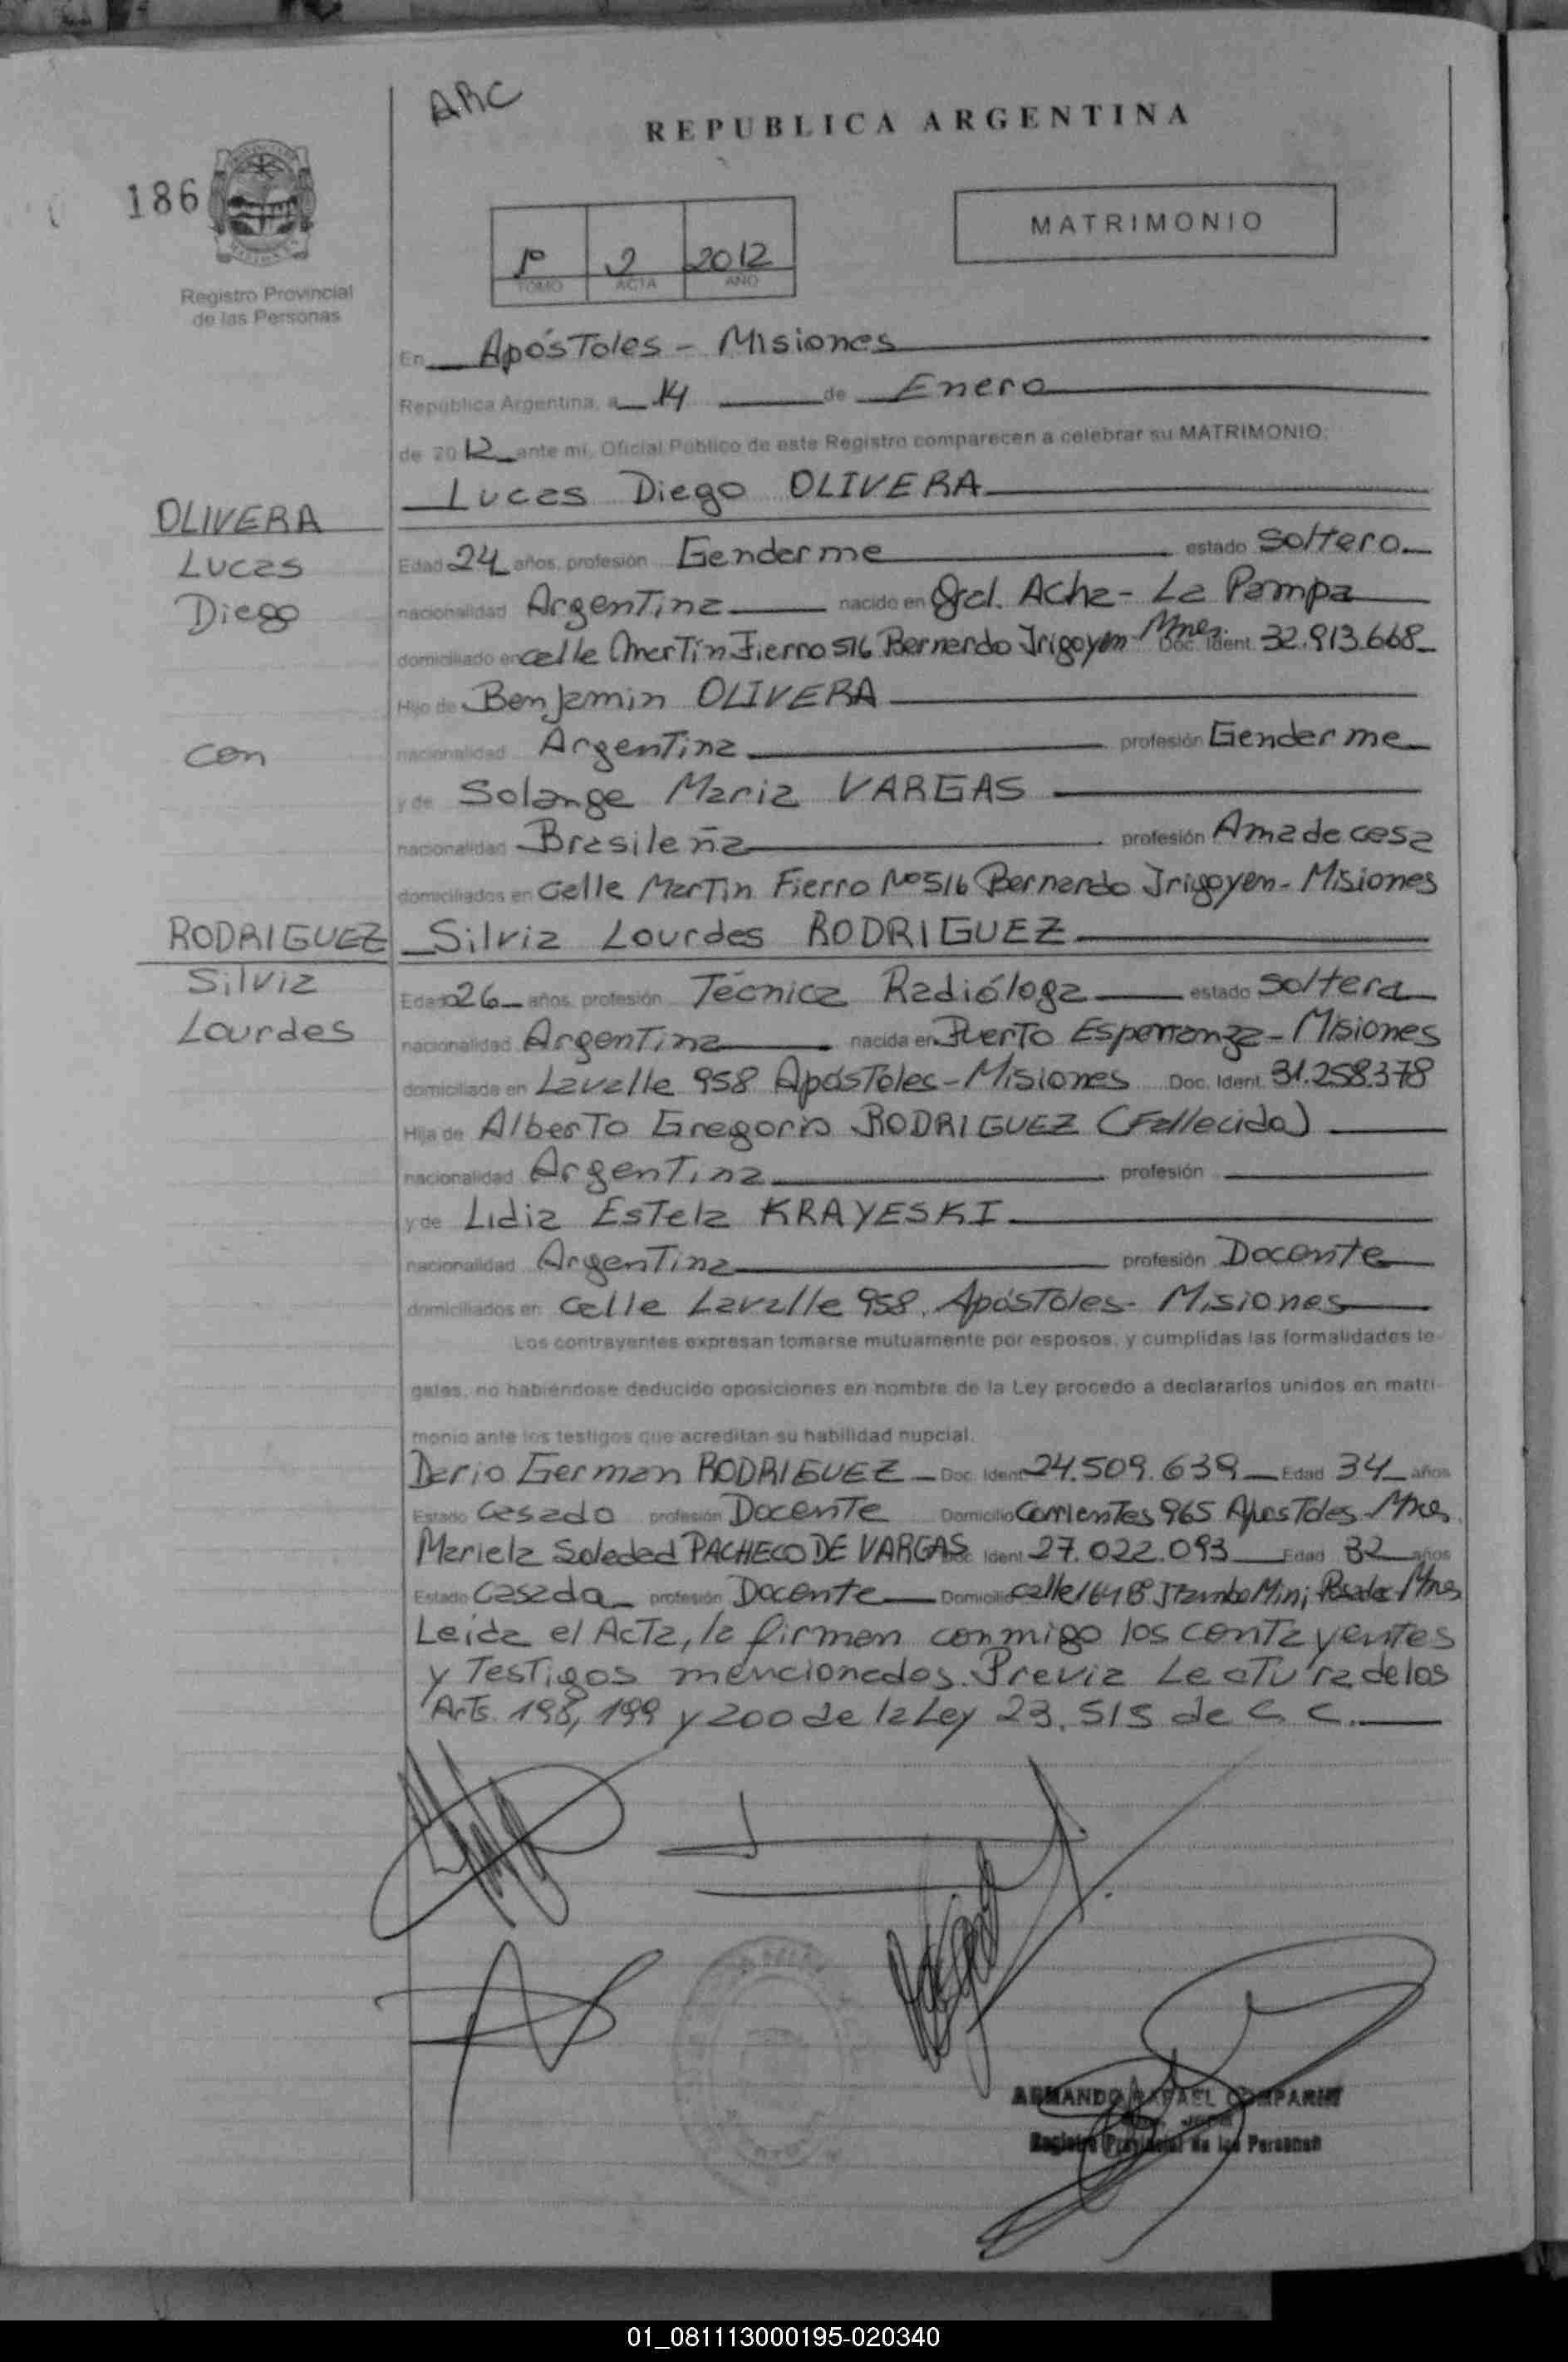 ARC
REPUBLICA ARGENTINA
186
MATRIMONIO
1º 2 2012
TOMO ACTA AÑO
Registro Provincial
de las Personas
En Apóstoles - Misiones
República Argentina, a 14 de Enero
de 2012 ante mi, Oficial Público de este Registro comparecen a celebrar su MATRIMONIO:
Lucas Diego OLIVERA
OLIVERA
Lucas
Diego
Edad 24 años, profesión Gendarme estado Soltero
nacionalidad Argentina nacido en Gral. Acha - La Pampa
domiciliado en calle Martín Fierro 516 Bernardo Irigoyen Mnes. Doc. Ident. 32.913.668
Hijo de Benjamin OLIVERA
con
nacionalidad Argentina profesión Gendarme
y de Solange Maria VARGAS
nacionalidad Brasileña profesión Ama de casa
domiciliados en Calle Martin Fierro Nº 516 Bernardo Irigoyen - Misiones
RODRIGUEZ
Silvia
Lourdes
Silvia Lourdes RODRIGUEZ
Edad 26 años, profesión Técnica Radióloga estado Soltera
nacionalidad Argentina nacida en Puerto Esperanza - Misiones
domiciliada en Lavalle 958 Apóstoles - Misiones Doc. Ident. 31.258.378
Hija de Alberto Gregorio RODRIGUEZ (Fallecido)
nacionalidad Argentina profesión
y de Lidia Estela KRAYESKI
nacionalidad Argentina profesión Docente
domiciliados en Calle Lavalle 958. Apóstoles - Misiones
Los contrayentes expresan tomarse mutuamente por esposos, y cumplidas las formalidades le-
gales, no habiéndose deducido oposiciones en nombre de la Ley procedo a declararlos unidos en matri-
monio ante los testigos que acreditan su habilidad nupcial.
Dario German RODRIGUEZ Doc. Ident. 24.509.639 Edad 34 años
Estado Casado profesión Docente Domicilio Corrientes 965 Apostoles Mnes.
Mariela Soledad PACHECO DE VARGAS Doc. Ident. 27.022.093 Edad 32 años
Estado Casada profesión Docente Domicilio calle Itambe Mini Posadas Mnes
Leida el Acta, la firman conmigo los contayentes
y Testigos mencionados. Previa Lectura de los
Arts. 198, 199 y 200 de la Ley 23.515 de C. C.
ARMANDO RAFAEL COMPARIN
Registro Provincial de las Personas
01_081113000195-020340